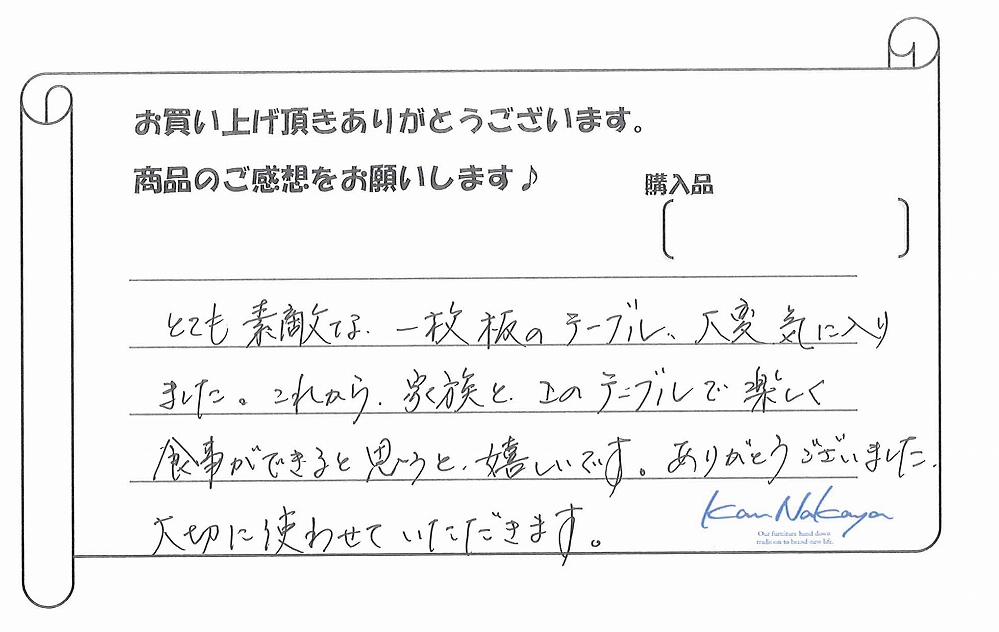 お買い上げ頂きありがとうございます。
商品のご感想をお願いします♪
購入品
とても素敵な、一枚板のテーブル、大変気に入り
ました。これから、家族と、このテーブルで楽しく
食事ができると思うと、嬉しいです。ありがとうございました。
大切に使わせていただきます。
Kan Nakaya
Our furniture hand down
tradition to brand-new life.